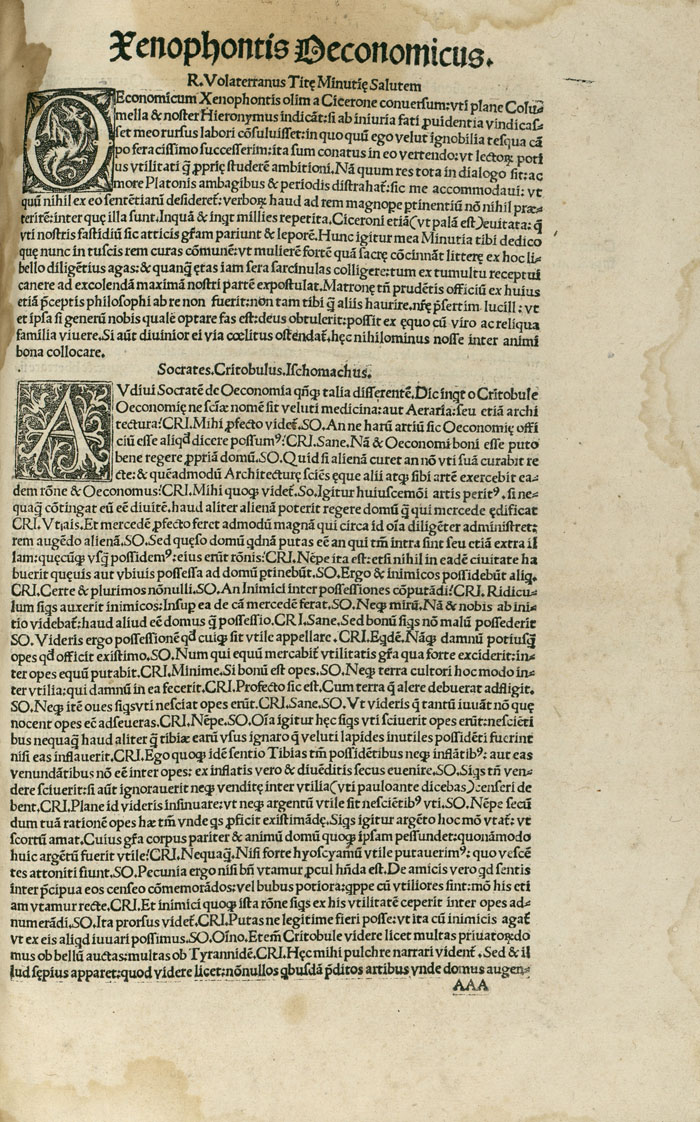 Xenophontis Oeconomicus.
R. Volaterranus Titę Minutię Salutem
OEconomicum Xenophontis olim a Cicerone conuersum: vti plane Colu⸗
mella & noster Hieronymus indicāt: si ab iniuria fati ꝓuidentia vindicas⸗
set meo rursus labori cōsuluisset: in quo quū ego velut ignobilia tesqua cā
po feracissimo successerim: ita sum conatus in eo vertendo: vt lectoꝝ poti
us vtilitati q̄ ꝓprię studerē ambitioni. Nā quum res tota in dialogo sit: ac
more Platonis ambagibus & periodis distrahat᷑: sic me accommodaui: vt
quū nihil ex eo sentētiarū desideret᷑: verboꝝ haud ad rem magnope ꝑtinentiū nō nihil præ⸗
terirē: inter quę illa sunt. Inquā & inqt millies repetita. Ciceroni etiā (vt palā est) euitata: q̄
vti nostris fastidiū sic atticis gr̄am pariunt & leporē. Hunc igitur mea Minutia tibi dedico
quę nunc in tuscis rem curas cōmunē: vt mulierē fortē quā sacrę cōcinnāt litterę ex hoc li⸗
bello diligētius agas: & quanq̄ ętas iam sera sarcinulas colligere: tum ex tumultu receptui
canere ad excolendā maximā nostri partē expostulat. Matronę tn̄ prudētis officiū ex huius
etiā p̄ceptis philosophi ab re non fuerit: non tam tibi q̄ aliis haurire. nr̄ę p̄sertim lucill: vt
et ipsa si generū nobis qualē optare fas est: deus obtulerit: possit ex ęquo cū viro ac reliqua
familia viuere. Si aūt diuinior ei via cœlitus ostendat᷑. hęc nihilominus nosse inter animi
bona collocare.
Socrates. Critobulus. Ischomachus.
AVdiui Socratē de Oeconomia qn̄qꝫ talia disserentē. Dic inqt o Critobule
Oeconomię ne sciæ nomē sit veluti medicina: aut Aeraria: seu etiā archi
tectura? CRI. Mihi ꝓfecto videt᷑. SO. An ne harū artiū sic Oeconomię offi
ciū esse aliqd dicere possumꝰ? CRI. Sane. Nā & Oeconomi boni esse puto
bene regere ꝓpriā domū. SO. Quid si alienā curet an nō vti suā curabit re
cte: & quēadmodū Architecturę sciēs ęque alii atqꝫ sibi artē exercebit ea⸗
dem rōne & Oeconomus? CRI. Mihi quoqꝫ videt᷑. So. Igitur huiuscemōi artis peritꝰ. si ne⸗
quaq̄ cōtingat eū eē diuitē. haud aliter alienā poterit regere domū q̄ qui mercede ędificat
CRI. Vtiqꝫ ais. Et mercedē ꝓfecto feret admodū magnā qui circa id oīa diligēter administret:
rem augēdo alienā. SO. Sed quęso domū qdnā putas eē an qui tm̄ intra sint seu etiā extra il
lam: quęcūqꝫ vsq̄ possidemꝰ: eius erūt rōnis? CRI. Nēpe ita est: etsi nihil in eadē ciuitate ha
buerit quęuis aut vbiuis possessa ad domū ꝑtinebūt. SO. Ergo & inimicos possidebūt aliq.
CRI. Certe & plurimos nōnulli. SO. An Inimici inter possessiones cōputādi? CRI. Ridicu⸗
lum siqs auxerit inimicos: Insuꝑ ea de cā mercedē ferat. SO. Neqꝫ mirū. Nā & nobis ab ini⸗
tio videbat᷑: haud aliud eē domus q̄ possessio. CRI. Sane. Sed bonū siqs nō malū possederit
SO. Videris ergo possessionē qd cuiqꝫ sit vtile appellare. CRI. Eqdē. Nāqꝫ damnū potiusq̄
opes qd officit existimo. SO. Num qui equū mercabit᷑ vtilitatis gr̄a qua forte exciderit: in⸗
ter opes equū putabit. CRI. Minime. Si bonū est opes. SO. Neqꝫ terra cultori hoc modo in⸗
ter vtilia: qui damnū in ea fecerit. CRI. Profecto sic est. Cum terra q̄ alere debuerat adfligit.
SO. Neqꝫ itē oues siqs vti nesciat opes erūt. CRI. Sane. SO. Vt videris q̄ tantū iuuāt nō quę
nocent opes eē adseueras. CRI. Nēpe. SO. Oīa igitur hęc siqs vti sciuerit opes erūt: nesciēti
bus nequaq̄ haud aliter q̄ tibiæ earū vsus ignaro q̄ veluti lapides inutiles possidēti fuerint
nisi eas inflauerit. CRI. Ego quoqꝫ idē sentio Tibias tm̄ possidētibus neqꝫ inflātibꝰ: aut eas
venundātibus nō eē inter opes: ex inflatis vero & diuēditis secus euenire. SO. Siqs tn̄ ven⸗
dere sciuerit: si aūt ignorauerit neqꝫ venditę inter vtilia (vti pauloante dicebas): censeri de
bent. CRI. Plane id videris insinuare: vt neqꝫ argentū vtile sit nesciētibꝰ vti. SO. Nēpe secū
dum tuā rationē opes hæ tm̄ vnde qs ꝓficit existimādę. Siqs igitur argēto hoc mō vtat᷑: vt
scortū amat. Cuius gr̄a corpus pariter & animū domū quoqꝫ ipsam pessundet: quonāmodo
huic argētū fuerit vtile? CRI. Nequaq̄. Nisi forte hyoscyamū vtile putauerimꝰ: quo vescē⸗
tes attoniti fiunt. SO. Pecunia ergo nisi bn̄ vtamur ꝓcul hn̄da est. De amicis vero qd sentis
inter p̄cipua eos censeo cōmemorādos: vel bubus potiora: qppe cū vtiliores sint: mō his eti
am vtamur recte. CRI. Et inimici quoqꝫ ista rōne siqs ex his vtilitatē ceperit inter opes ad⸗
numerādi. SO. Ita prorsus videt᷑. CRI. Putas ne legitime fieri posse: vt ita cū inimicis agat᷑
vt ex eis aliqd iuuari possimus. SO. Oīno. Etem̄ Critobule videre licet multas priuatoꝝ do
mus ob bellū auctas: multas ob Tyrannidē. CRI. Hęc mihi pulchre narrari vident᷑. Sed & il
lud sępius apparet: quod videre licet: nōnullos qbusdā p̄ditos artibus vnde domus augen⸗
AAA